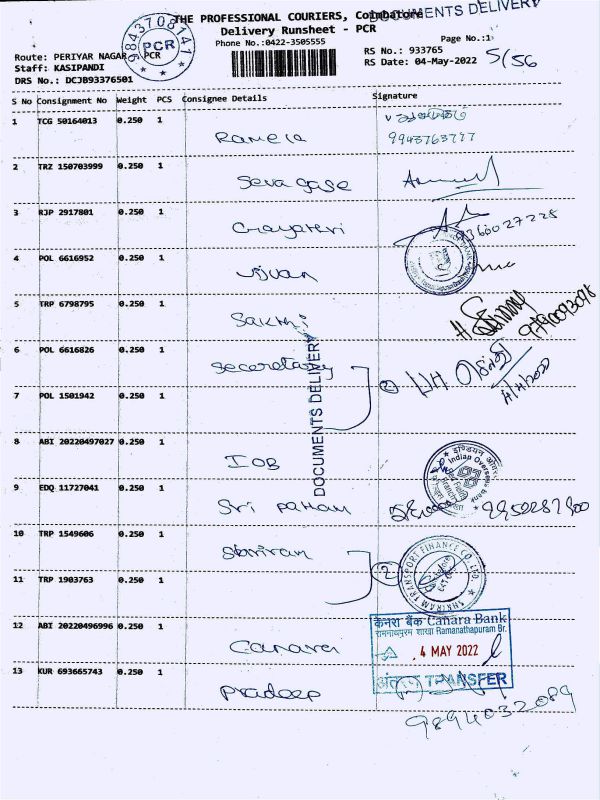 THE PROFESSIONAL COURIERS, Coimbatore
DOCUMENTS DELIVERY
Delivery Runsheet - PCR
Phone No.:0422-3505555
Page No.:1
9843708141
PCR
Route: PERIYAR NAGAR - PCR
RS No.: 933765
Staff: KASIPANDI
RS Date: 04-May-2022
5/56
DRS No.: DCJB93376501
S No Consignment No Weight PCS Consignee Details Signature
1 TCG 50164013 0.250 1 Ramela
9943763777
2 TRZ 150703999 0.250 1 Sevagase
3 RJP 2917801 0.250 1 Gayatri
9366027228
4 POL 6616952 0.250 1 vijuan
5 TRP 6798795 0.250 1 Sakthi
9790093098
6 POL 6616826 0.250 1 Seceretary
2
DOCUMENTS DELIVERY
7 POL 1501942 0.250 1
8 ABI 20220497027 0.250 1 IOB
Indian Overseas Bank
9 EDQ 11727041 0.250 1 Sri
10 TRP 1549606 0.250 1
2
SHRIRAM TRANSPORT FINANCE CO. LTD.
11 TRP 1903763 0.250 1
12 ABI 20220496996 0.250 1 Canara
केनरा बैंक Canara Bank
रामनाथपुरम शाखा Ramanathapuram Br.
4 MAY 2022
अंतरण TRANSFER
13 KUR 693665743 0.250 1 Pradeep
9894032089